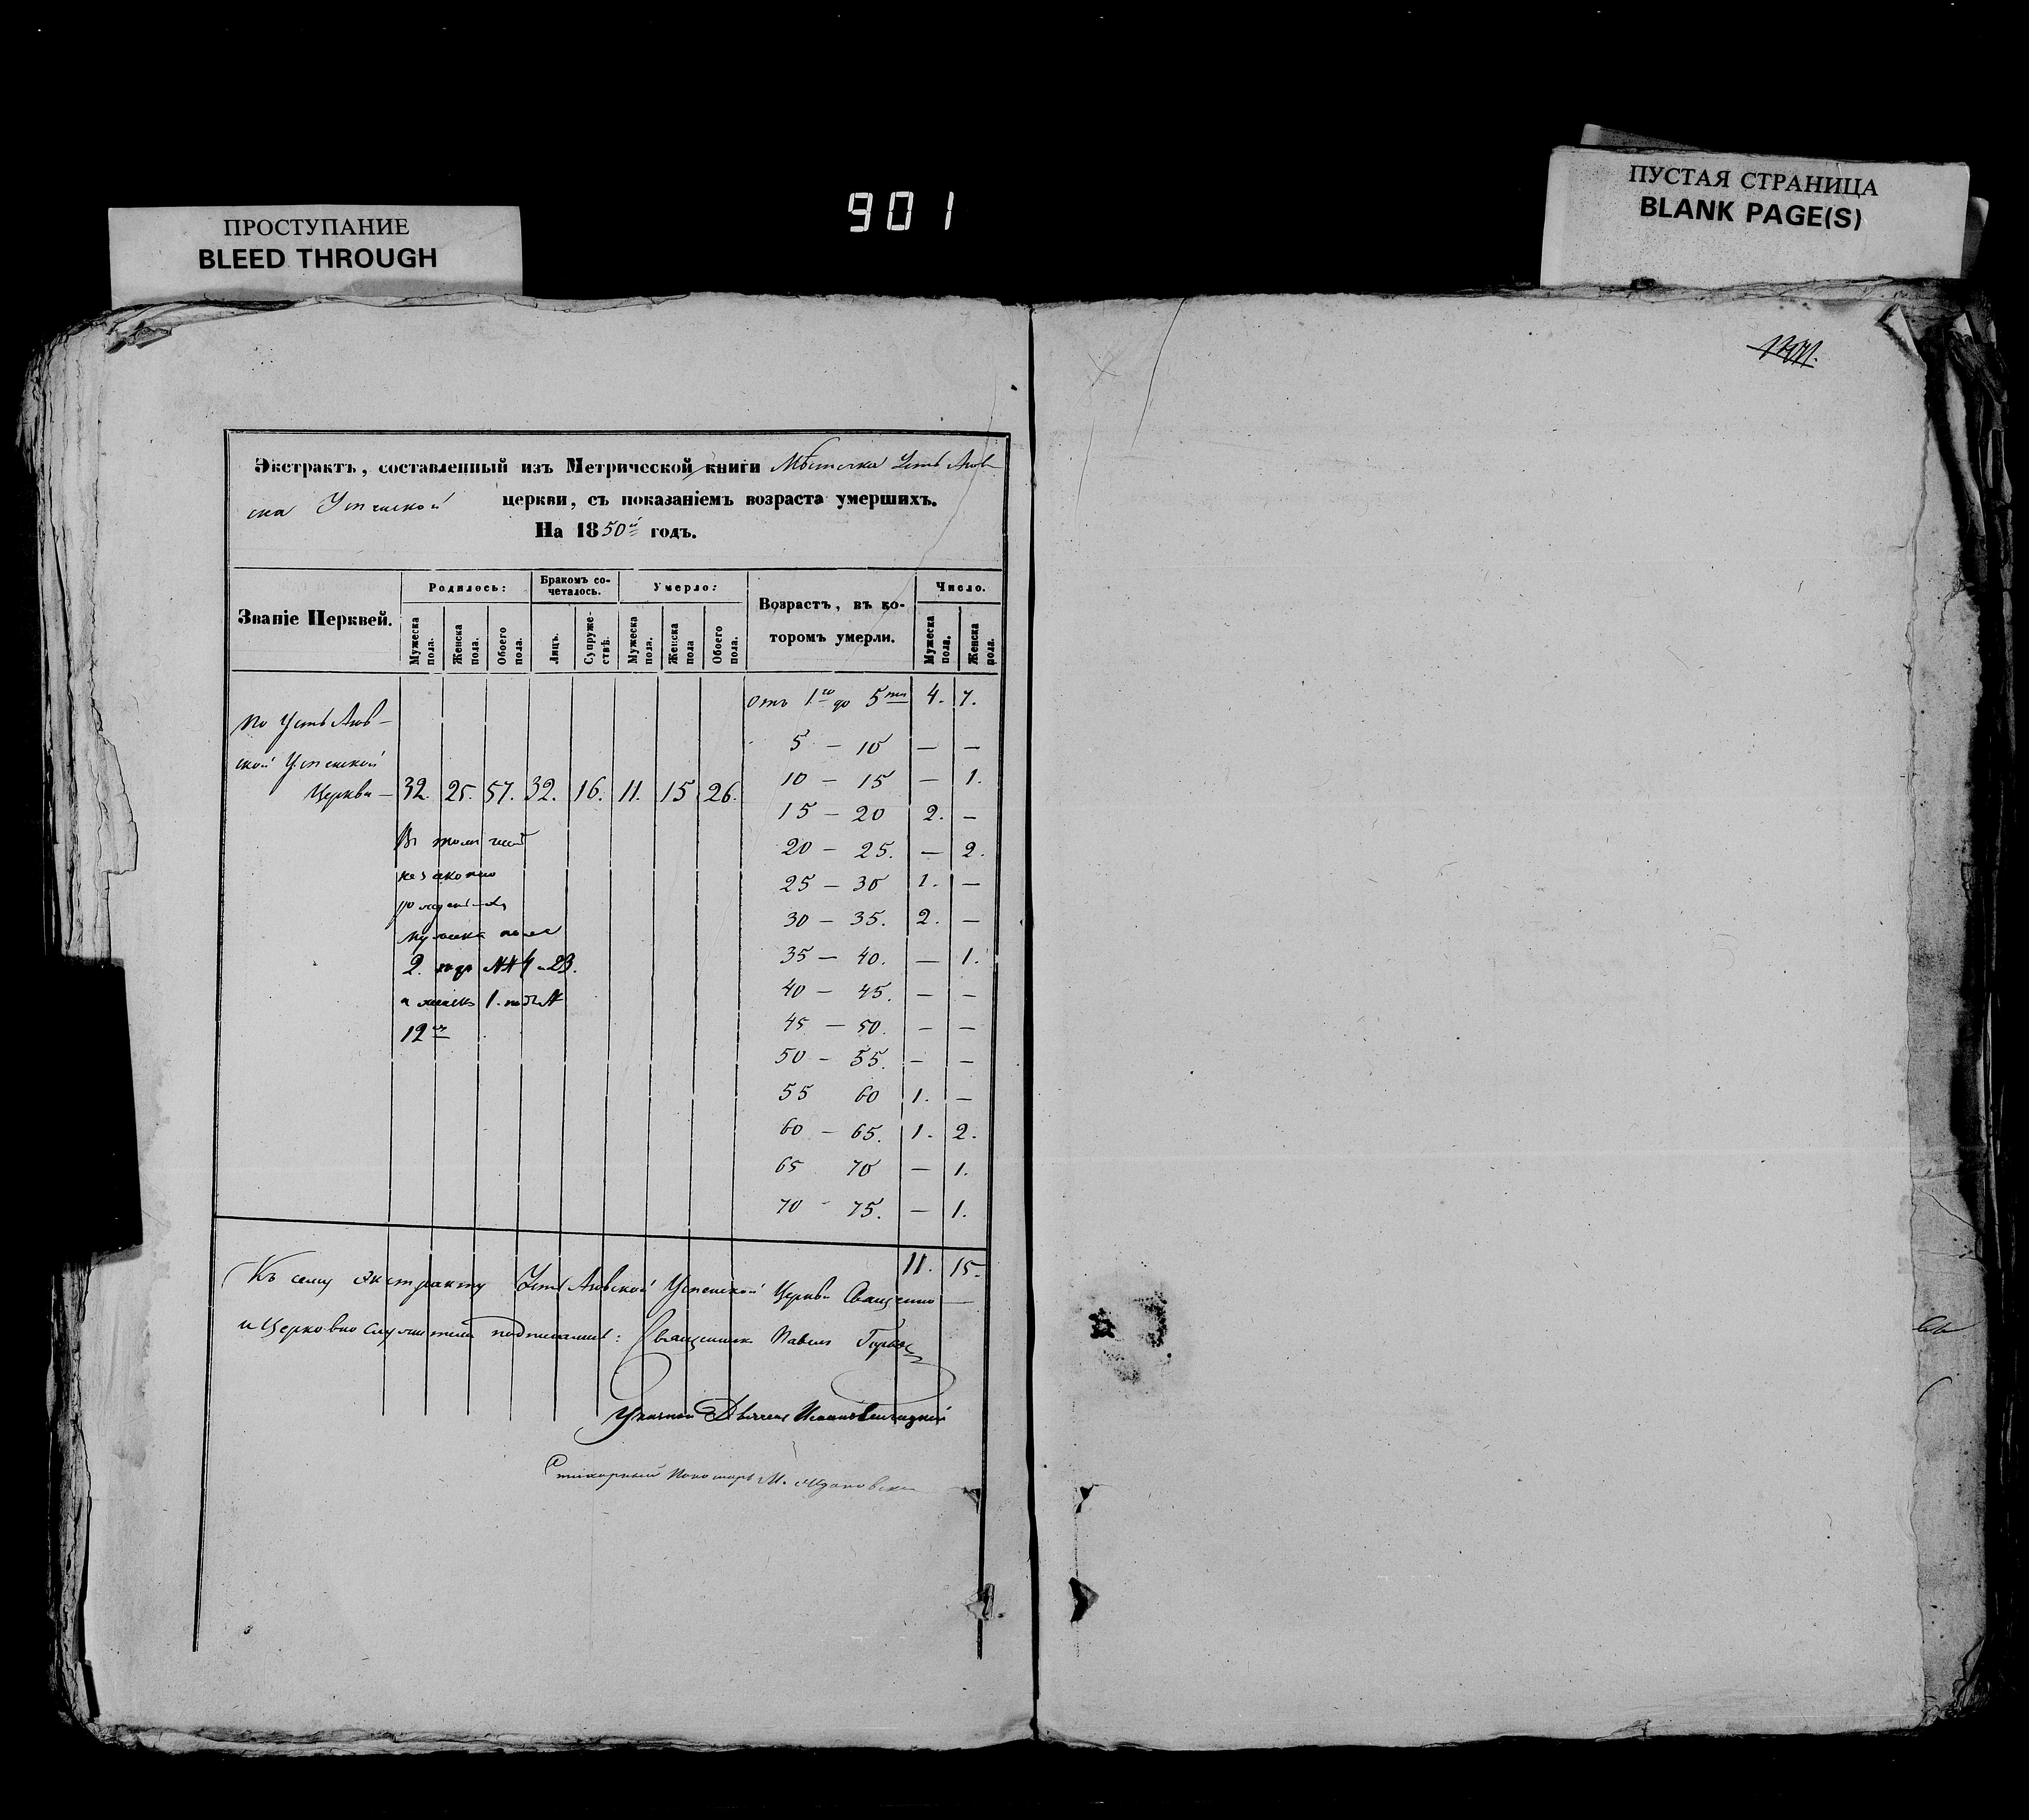 901
ПРОСТУПАНИЕ
BLEED THROUGH
ПУСТАЯ СТРАНИЦА
BLANK PAGE(S)
Экстрактъ, составленный изъ Метрической книги Мѣстечка Усть Люб-
ска Успенской церкви, съ показаніемъ возраста умершихъ.
На 1850й годъ.
Званіе Церквей.
Родилось:
Мужеска пола.
Женска пола.
Обоего пола.
Бракомъ со-
четалось.
Лицъ.
Супруже-
ствъ.
Умерло:
Мужеска пола.
Женска пола
Обоего пола.
Возрастъ, въ ко-
торомъ умерли.
Число.
Мужеска пола.
Женска пола.
По Усть Люб-
ской Успенской
Церкви — 32. 25. 57. 32. 16. 11. 15 26.
Въ томъ числѣ
незаконно
мужеска пола
2. подъ №№ 4 и 23.
1. подъ №
12
Отъ 1го до 5ти 4. 7.
5 — 10 — —
10 — 15 — 1.
15 — 20 2. —
20 — 25. — 2.
25 — 30 1. —
30 — 35. 2. —
35 — 40. — 1.
40 — 45. — —
45 — 50. — —
50 — 55. — —
55 60 1. —
60 — 65. 1. 2.
65 70 — 1.
70 - 75. — 1.
11. 15.
Къ сему экстракту Усть Любской Успенской Церкви Священно —
и Церковно служители подписались: Священникъ Павелъ
Указной Дьячекъ
Стихарный Пономарь М.